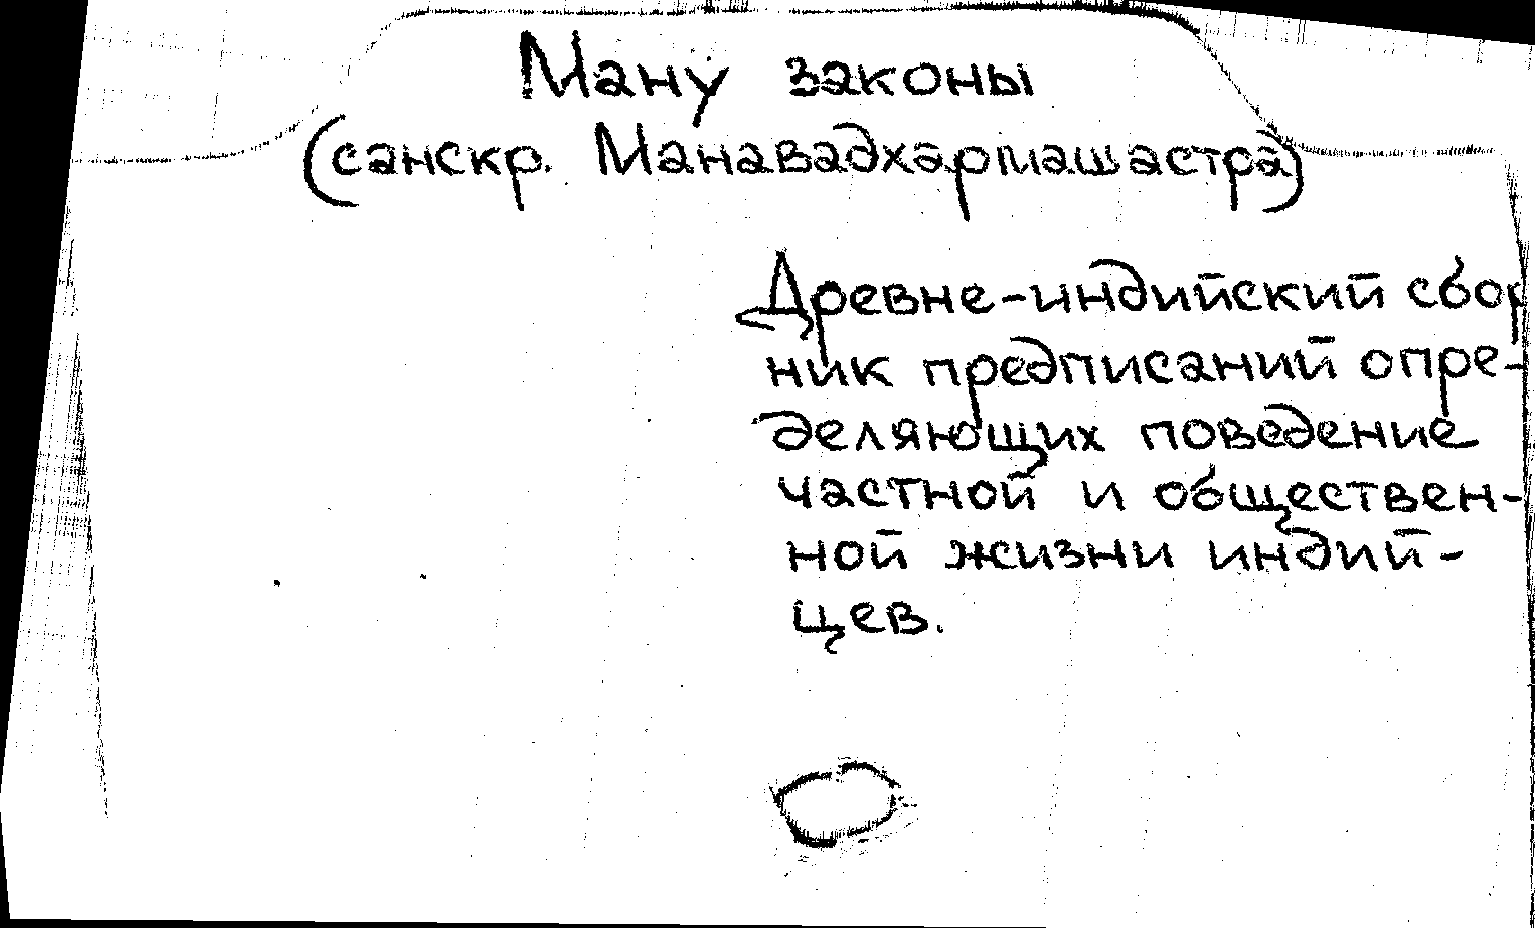 Ману законы
(санскр. Манавадхармашастра)
Древне-индийский сбор
ник предписаний опре-
деляющих поведение
частной и обществен-
ной жизни индий-
цев.